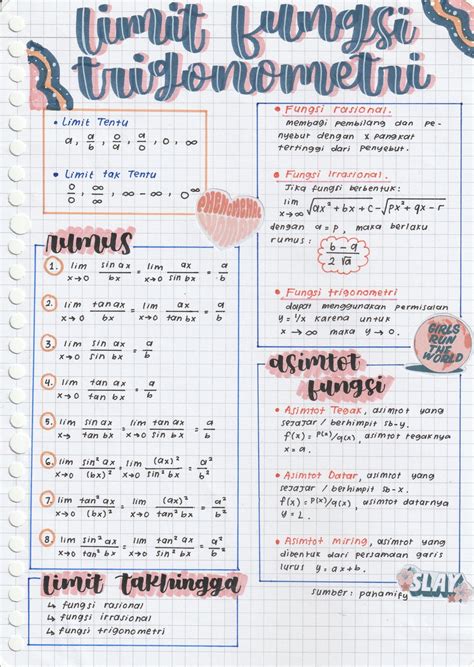 limit fungsi
trigonometri
• Limit Tentu
a, a/b, 0/a, a/0, 0, ∞
• Limit tak Tentu
0/0, ∞/∞, ∞ - ∞, 0^∞
PHENOMENAL
rumus
1. lim x→0 sin ax / bx = lim x→0 ax / sin bx = a/b
2. lim x→0 tan ax / bx = lim x→0 ax / tan bx = a/b
3. lim x→0 sin ax / sin bx = a/b
4. lim x→0 tan ax / tan bx = a/b
5. lim x→0 sin ax / tan bx = lim x→0 tan ax / sin bx = a/b
6. lim x→0 sin² ax / (bx)² = lim x→0 (ax)² / sin² bx = a²/b²
7. lim x→0 tan² ax / (bx)² = lim x→0 (ax)² / tan² bx = a²/b²
8. lim x→0 sin² ax / tan² bx = lim x→0 tan² ax / sin² bx = a²/b²
limit takhingga
↳ fungsi rasional
↳ fungsi irrasional
↳ fungsi trigonometri
• Fungsi rasional.
membagi pembilang dan pe-
nyebut dengan x pangkat
tertinggi dari penyebut.
• Fungsi Irrasional.
Jika fungsi berbentuk:
lim x→∞ √ax² + bx + c - √px² + qx - r
dengan a = p, maka berlaku
rumus: b - a / 2√a
• Fungsi trigonometri
dapat menggunakan permisalan
y = 1/x karena untuk
x → ∞ maka y → 0.
GIRLS
RUN
THE
WORLD
asimtot
fungsi
• Asimtot Tegak, asimtot yang
sejajar / berhimpit sb-y.
f(x) = p(x)/q(x), asimtot tegaknya
x = a.
• Asimtot Datar, asimtot yang
sejajar / berhimpit sb-x.
f(x) = p(x)/q(x), asimtot datarnya
y = L.
• Asimtot miring, asimtot yang
dibentuk dari persamaan garis
lurus y = ax + b.
sumber: pahamify
SLAY